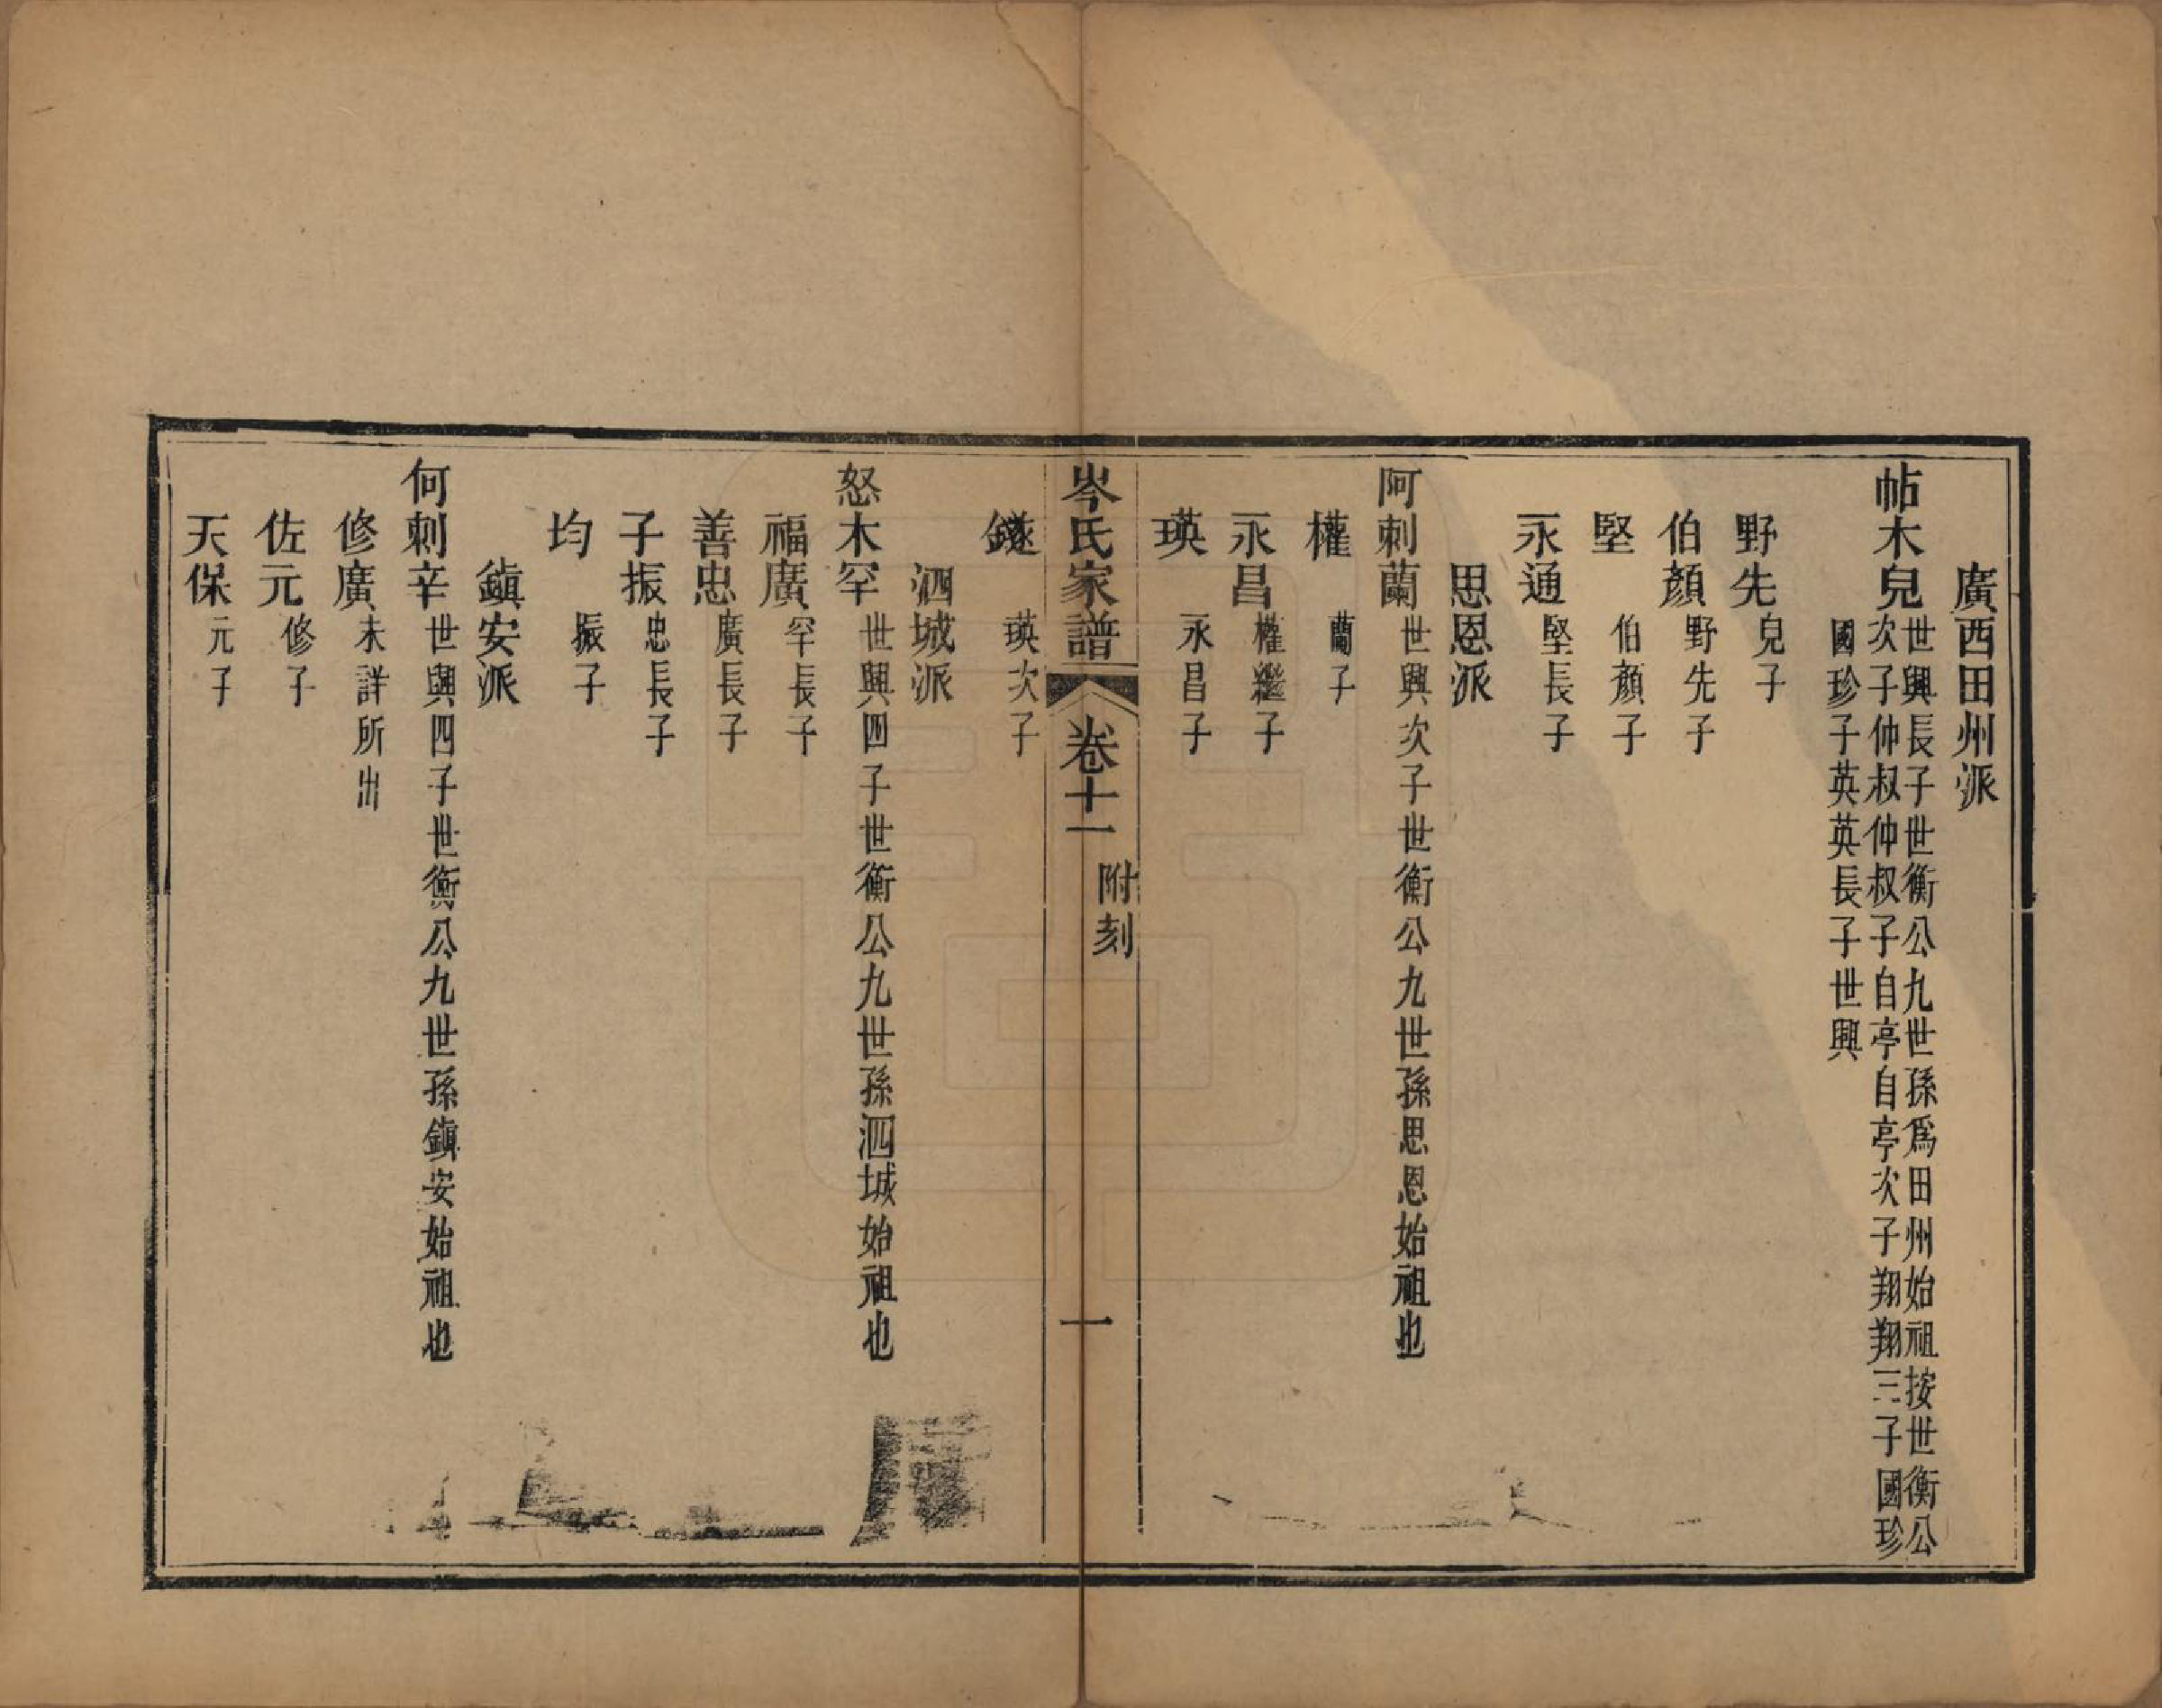 廣西田州派
帖木兒世興長子世衡公九世孫爲田州始祖按世衡公
次子仲叔仲叔子自亭自亭次子翔翔三子國珍
國珍子英英長子世興
野先兒子
伯顏野先子
堅伯顏子
永通堅長子
思恩派
阿刺蘭世興次子世衡公九世孫思恩始祖也
權蘭子
永昌權繼子
瑛永昌子
岑氏家譜 卷十一 附刻 一
鐩瑛次子
泗城派
怒木罕世興四子世衡公九世孫泗城始祖也
福廣罕長子
善忠廣長子
子振忠長子
均振子
鎮安派
何刺辛世興四子世衡公九世孫鎮安始祖也
修廣未詳所出
佐元修子
天保元子